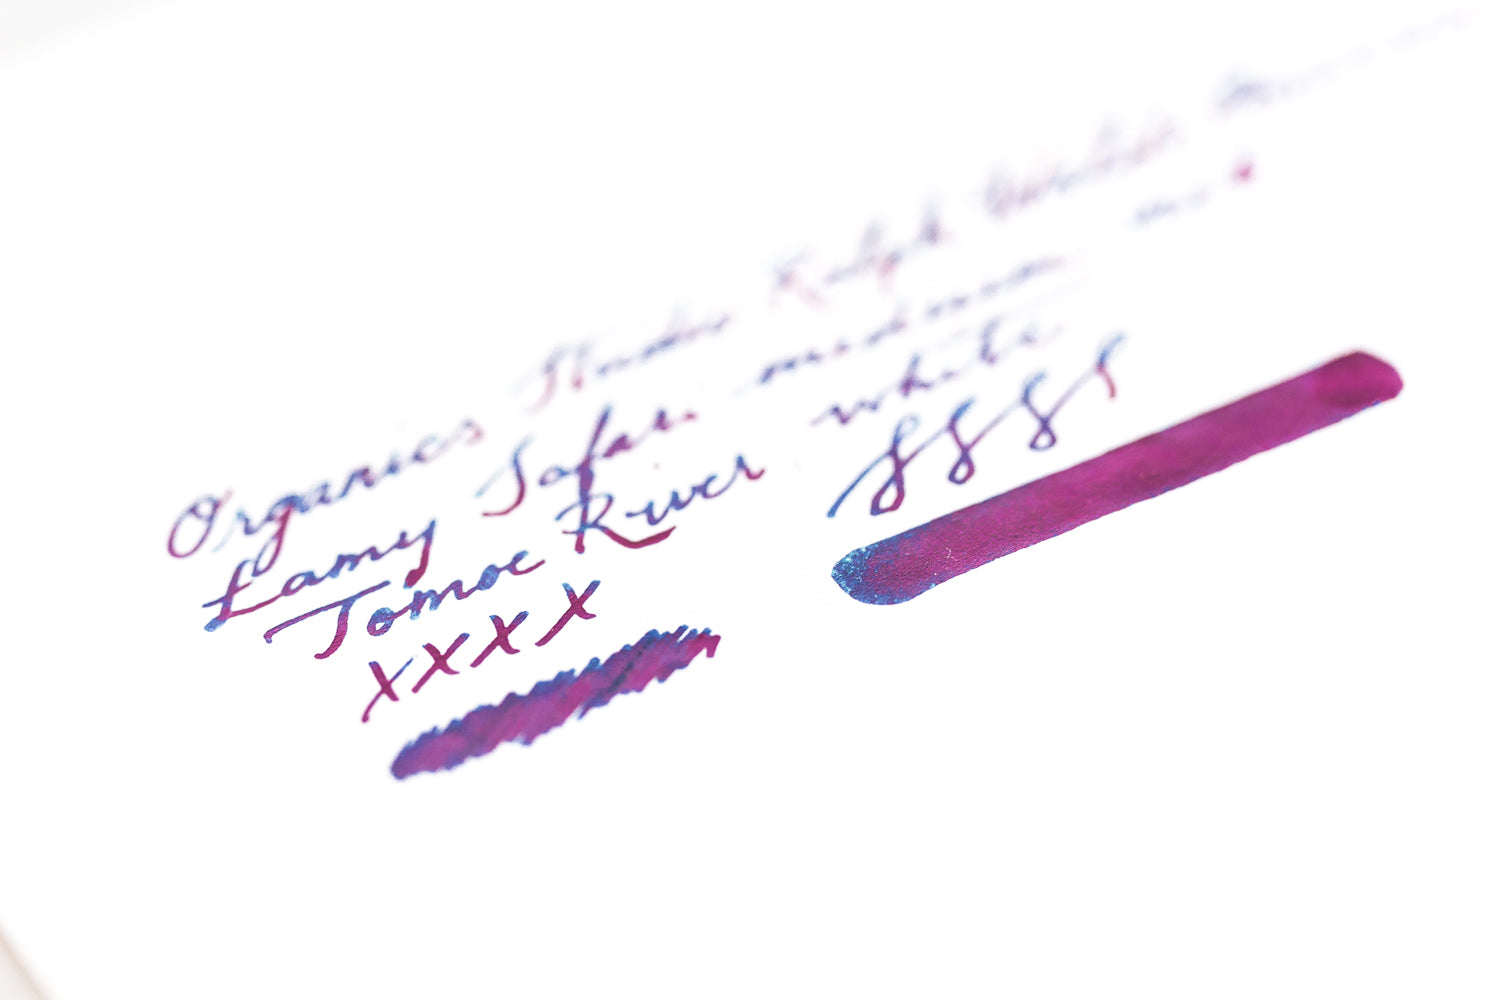 Organics Studio Ralph
Lamy Safari medium
Tomoe River white
xxxx